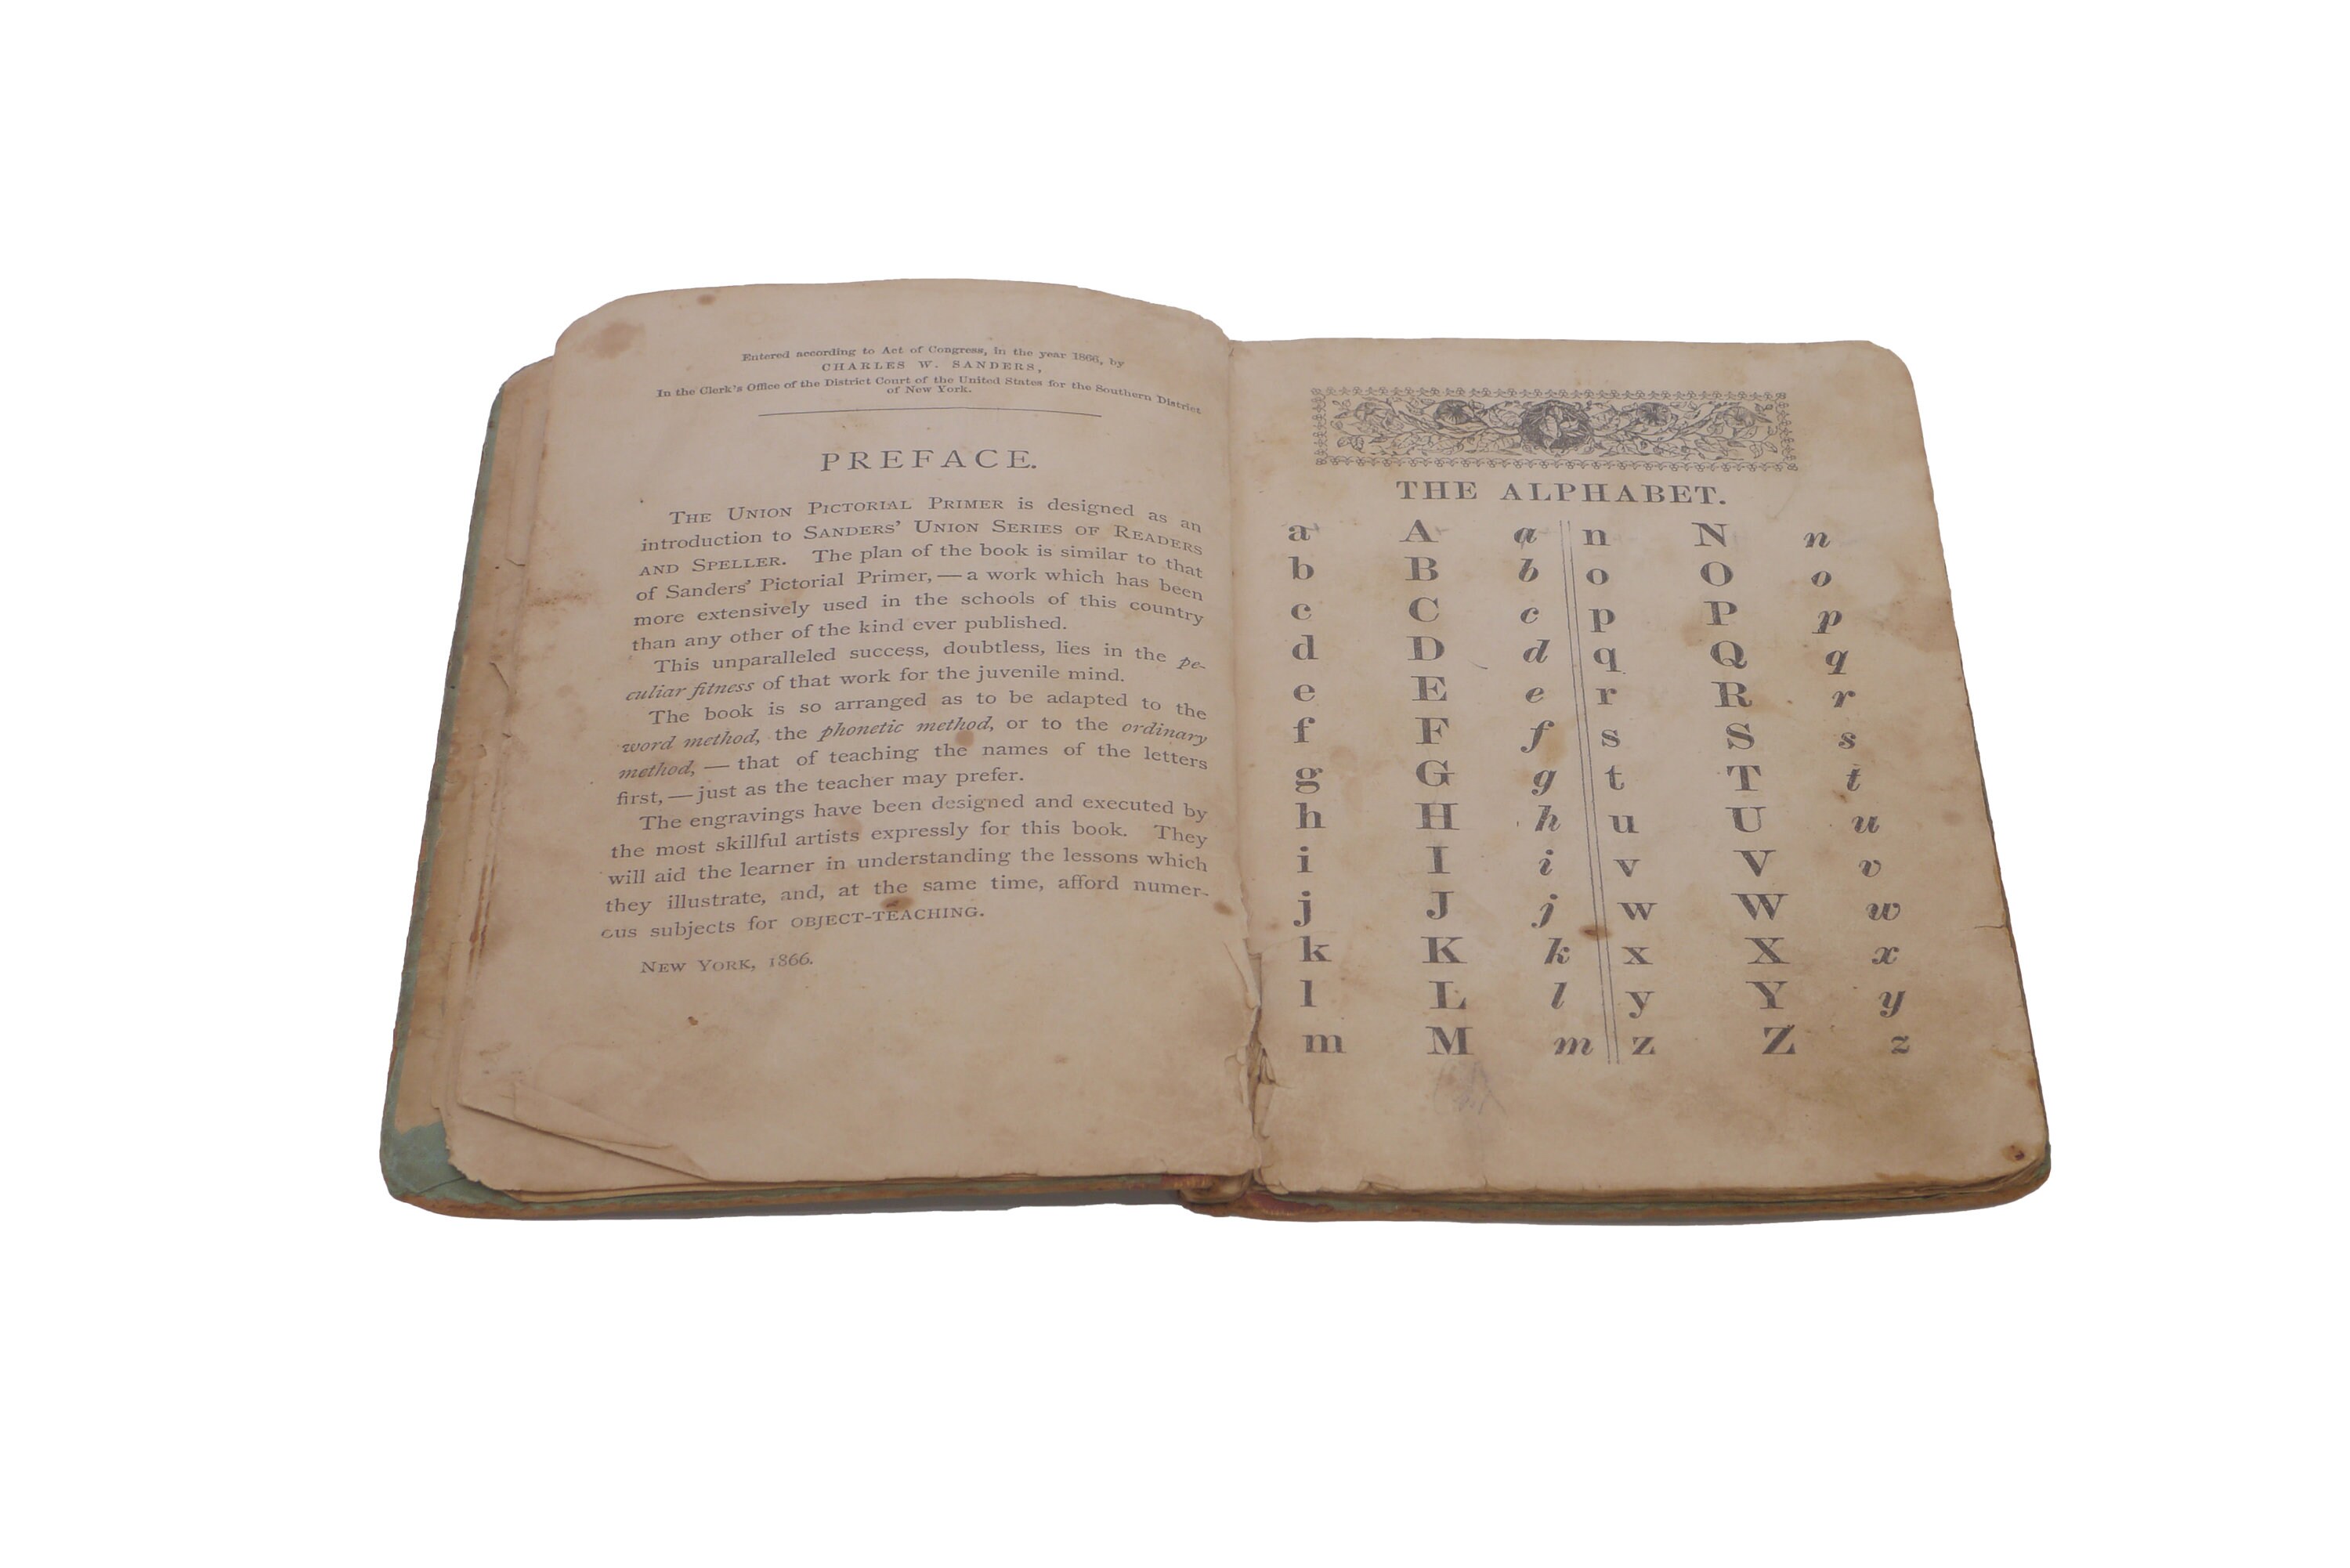 Entered according to Act of Congress, in the year 1866, by
CHARLES W. SANDERS,
In the Clerk's Office of the District Court of the United States for the Southern District
of New York.
PREFACE.
THE UNION PICTORIAL PRIMER is designed as an
introduction to SANDERS' UNION SERIES OF READERS
AND SPELLER. The plan of the book is similar to that
of Sanders' Pictorial Primer,—a work which has been
more extensively used in the schools of this country
than any other of the kind ever published.
This unparalleled success, doubtless, lies in the pe-
culiar fitness of that work for the juvenile mind.
The book is so arranged as to be adapted to the
word method, the phonetic method, or to the ordinary
method,—that of teaching the names of the letters
first,—just as the teacher may prefer.
The engravings have been designed and executed by
the most skillful artists expressly for this book. They
will aid the learner in understanding the lessons which
they illustrate, and, at the same time, afford numer-
ous subjects for OBJECT-TEACHING.
NEW YORK, 1866.
THE ALPHABET.
a A a n N n
b B b o O o
c C c p P p
d D d q Q q
e E e r R r
f F f s S s
g G g t T t
h H h u U u
i I i v V v
j J j w W w
k K k x X x
l L l y Y y
m M m z Z z